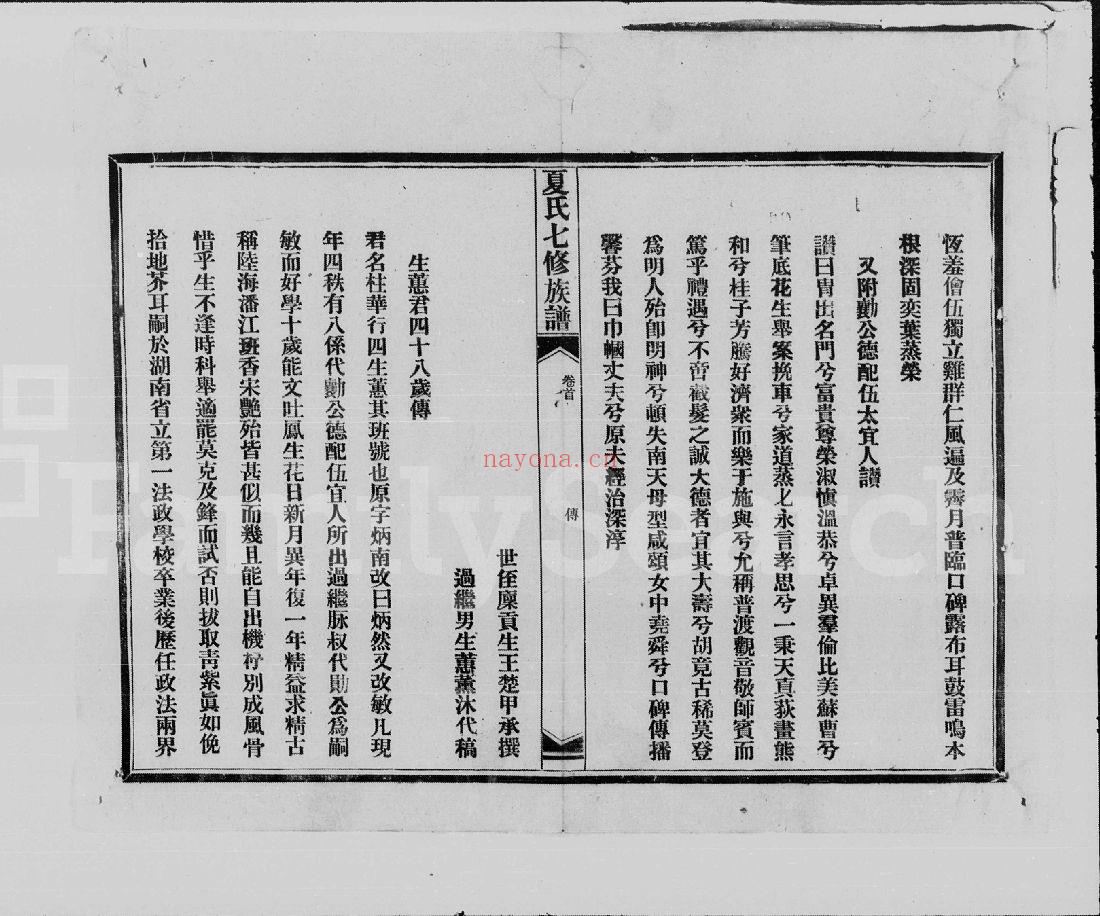 恆羞儈伍獨立雞群仁風遍及霽月普臨口碑露布耳鼓雷鳴本
根深固奕葉蒸榮
又附勷公德配伍太宜人讚
讚曰胄出名門兮富貴尊榮淑愼溫恭兮卓異羣倫比美蘇曹兮
筆底花生舉案挽車兮家道蒸上永言孝思兮一秉天真荻畫熊
和兮桂子芳騰好濟衆而樂于施與兮允稱普渡觀音敬師賓而
篤乎禮遇兮不啻截髮之誠大德者宜其大壽兮胡竟古稀莫登
爲明人殆卽明神兮頓失南天母型咸頌女中堯舜兮口碑傳播
馨芬我曰巾幗丈夫兮原未經治深淳
夏氏七修族譜
卷首
傳
世侄廩貢生王楚甲承撰
過繼男生蕙薰沐代稿
生蕙君四十八歲傳
君名柱華行四生蕙其班號也原字炳南改曰炳然又改敏凡現
年四秩有八係代勷公德配伍宜人所出過繼脉叔代勛公爲嗣
敏而好學十歲能文吐鳳生花日新月異年復一年精益求精古
稱陸海潘江班香宋艷殆皆甚似而幾且能自出機杼別成風骨
惜乎生不逢時科舉適罷莫克及鋒而試否則拔取靑紫眞如俛
拾地芥耳嗣於湖南省立第一法政學校卒業後歷任政法兩界
nayona.cn
FamilySearch